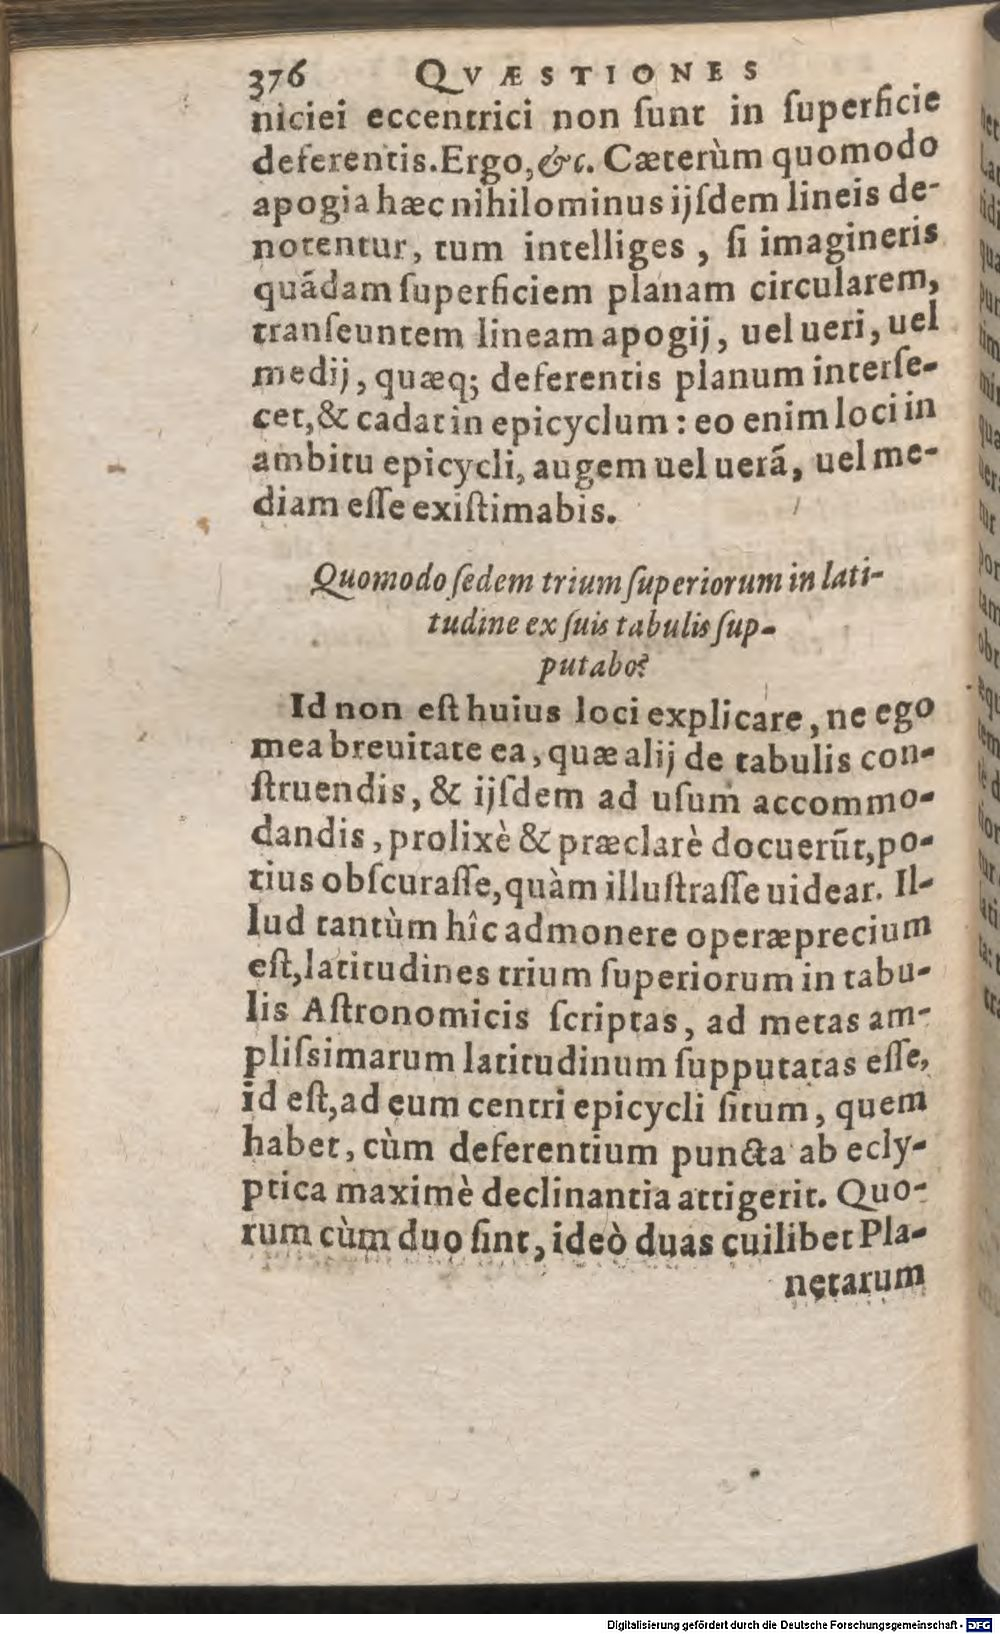 376 QVÆSTIONES
niciei eccentrici non ſunt in ſuperficie
deferentis. Ergo, &c. Cæterùm quomodo
apogia hæc nihilominus ijſdem lineis de-
notentur, tum intelliges, ſi imagineris
quãdam ſuperficiem planam circularem,
tranſeuntem lineam apogij, uel ueri, uel
medij, quæq; deferentis planum interſe-
cet, & cadat in epicyclum: eo enim loci in
ambitu epicycli, augem uel uerã, uel me-
diam eſſe exiſtimabis.
Quomodo ſedem trium ſuperiorum in lati-
tudine ex ſuis tabulis ſup-
putabo?
Id non eſt huius loci explicare, ne ego
mea breuitate ea, quæ alij de tabulis con-
ſtruendis, & ijſdem ad uſum accommo-
dandis, prolixè & præclarè docuerũt, po-
tius obſcuraſſe, quàm illuſtraſſe uidear. Il-
lud tantùm hîc admonere operæprecium
eſt, latitudines trium ſuperiorum in tabu-
lis Aſtronomicis ſcriptas, ad metas am-
pliſsimarum latitudinum ſupputatas eſſe,
id eſt, ad eum centri epicycli ſitum, quem
habet, cùm deferentium puncta ab ecly-
ptica maximè declinantia attigerit. Quo-
rum cùm duo ſint, ideò duas cuilibet Pla-
netarum
Digitalisierung gefördert durch die Deutsche Forschungsgemeinschaft - DFG